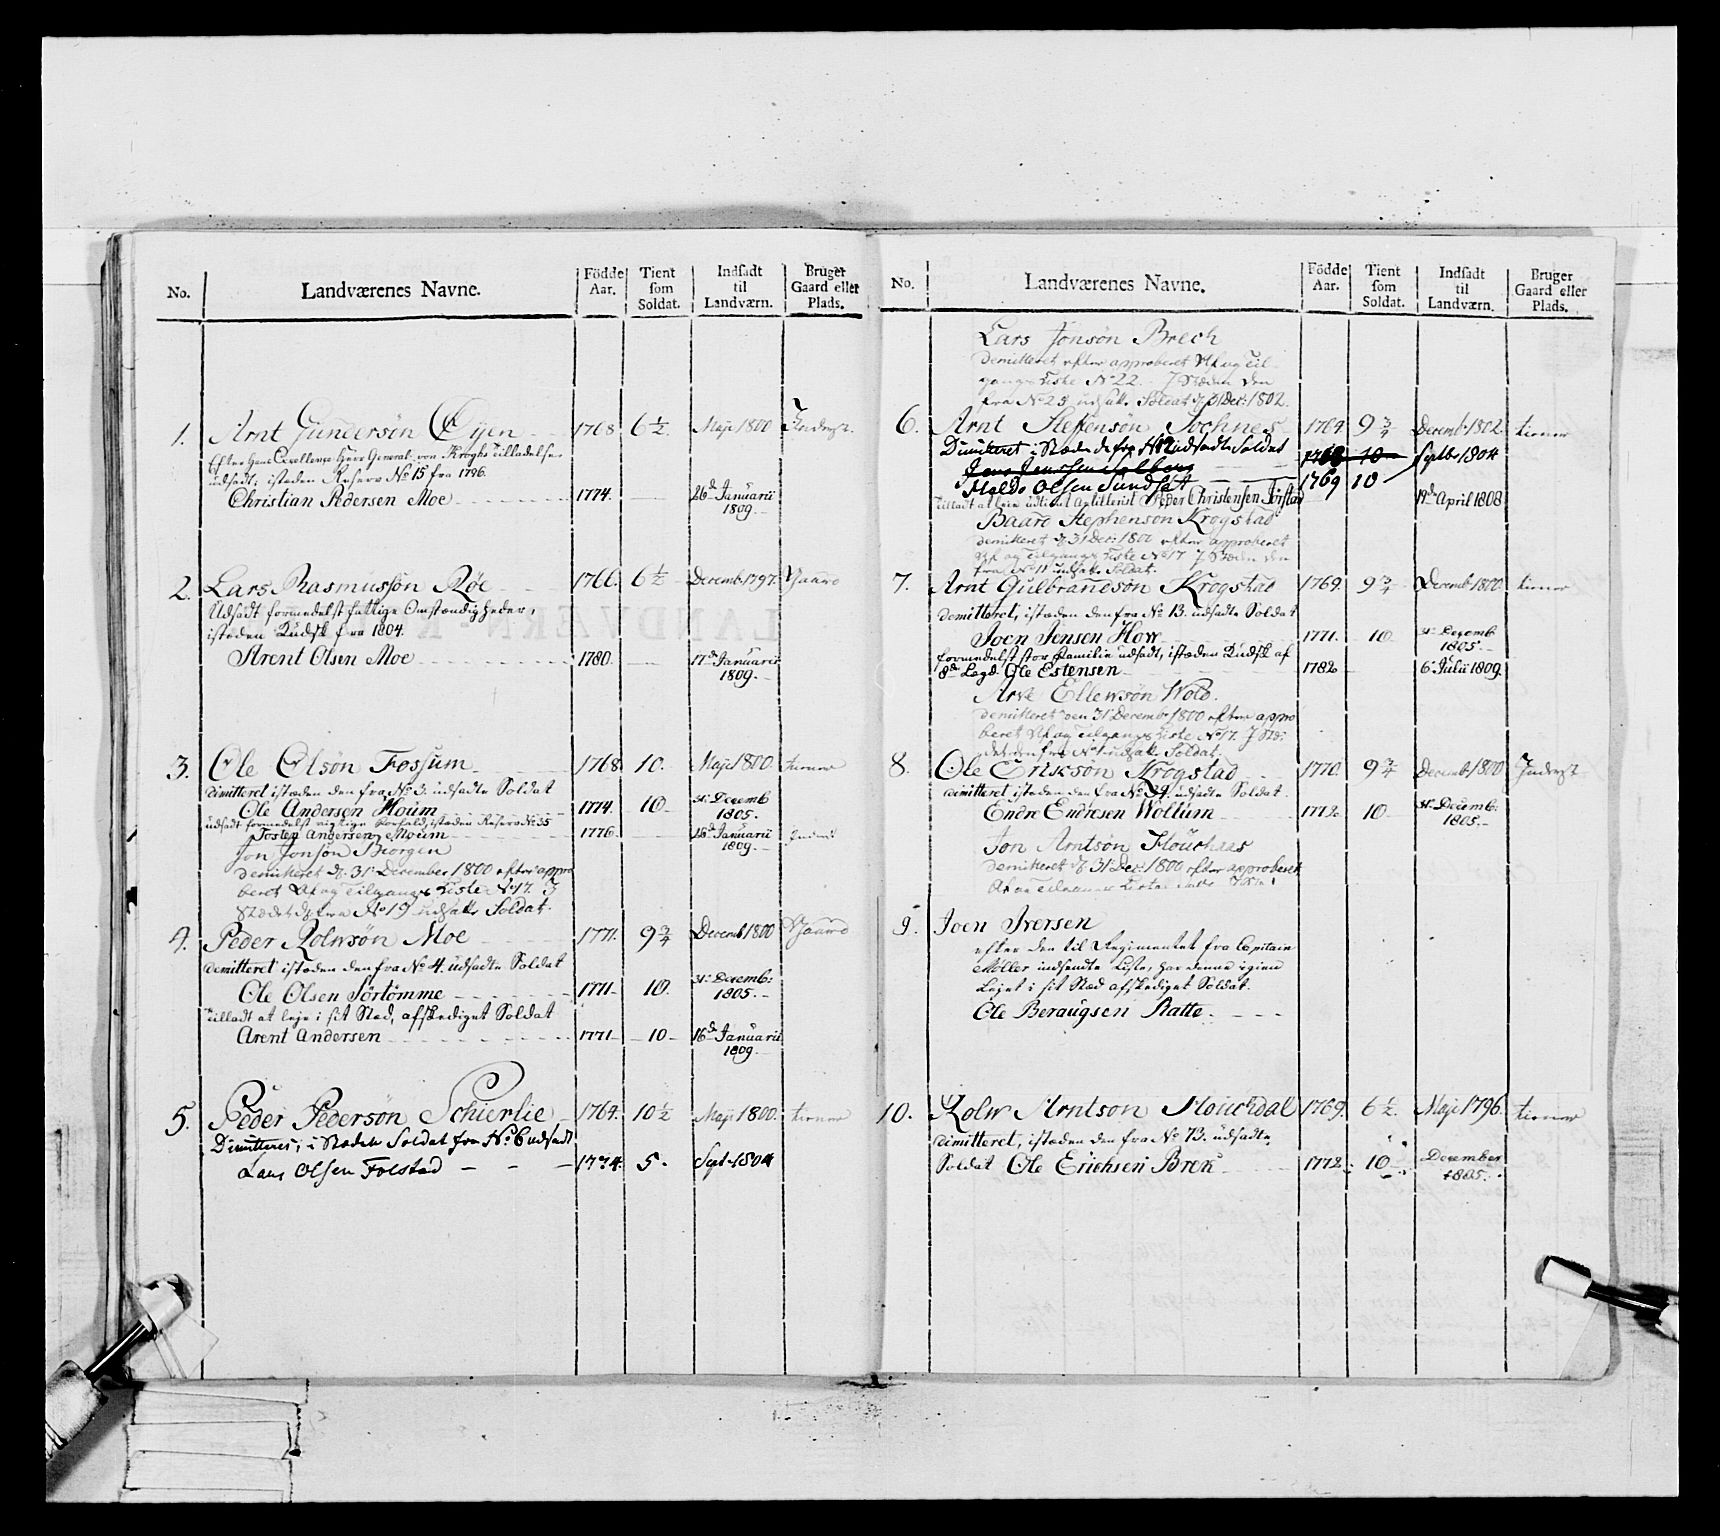 No. Landværenes Navne. Födde Aar. Tient som Soldat. Indsadt til Landværn. Bruger Gaard eller Plads.
1. Arnt Gundersön Öijen 1768 6½ Maji 1800 Inderst.
Efter Hans Excellence Herr General von Kroghs Tilladelse
udsadt; isteden Reserv No 15 fra 1796.
Christian Pedersen Moe 1774. 26de Januarii 1809.
2. Lars Rasmussön Röe 1766. 6½ Decemb 1797. Gaard
Udsadt formedelst fattige Omstændigheder,
isteden Kudsk fra 1804.
Arent Olsen Moe 1780 17de Januarii 1809.
3. Ole Olsön Fossum 1768 10. Maji 1800. tiener
dimitteret isteden den fra No 3. udsadte Soldat
Ole Andersen Houm 1774. 10 31e Decemb 1805.
udsadt formedelst vigtige Forfald, isteden Reserv No 35
Josten Andersen Moum 1776. 26de Januarii 1809. Inderst
Jon Jonsön Biorgen
demitteret d. 31 December 1800 efter appro
beret Af og Tilgangs Liste No 17. I
Stædet d. fra No 19 udsatte Soldat.
4. Peder Rolwsön Moe 1771. 9¾ Decemb 1800 Gaard
dimitteret isteden den fra No 4. udsadte Soldat
Ole Olsen Sörtömme 1771. 10. 31e Decemb: 1805.
Tilladt at leje i sit Sted, afskediget Soldat
Arent Andersen 1771 10 16de Januarii 1809.
5. Peder Pedersön Schierlie 1764. 10½ Maji 1800. tiener
Dimitteres, i Stædet Soldat fra No 6 udsadt
Lars Olsen Folstad 1774. 5. Sept 1804
No. Landværenes Navne. Födde Aar. Tient som Soldat. Indsadt til Landværn. Bruger Gaard eller Plads.
Lars Jonsön Brech
demitteret efter approberet Af og Til
gangs Liste No 22. I Stæden den
fra No 25 udsatte Soldat d. 31 Dec: 1802.
6. Arnt Stephensön Sochnes 1764. 9¾ Decemb 1802. tiener
Dimitteret i Stæde de fra No udsadte Soldat
Jens Jenssen Solberg 1768 10 Septbr 1804
Haldo Olsen Sundset 1769 10
Tilladt at leie udtient Artillerist Peder Christensen Forstad 19de April 1808
Baard Stephensön Krogstad
demitteret d. 31 Dec: 1800 efter approberet
Af og Tilgangs Liste No 17 I Stæden den
fra No 11 udsatte Soldat.
7. Arnt Gulbrandsön Krogstad 1769. 9¾ Decemb 1800. tiener
demitteret, isteden den fra No 13. udsadte Soldat
Joen Jensen How 1771. 10 31e Decemb 1805.
formedelst stor Familie udsadt, isteden Kudsk af
8de Legd Ole Estensen 1782 6e Julii 1809.
Arnt Ellewsön Wold.
demitteret den 31 Decembr 1800 efter appro
beret Af og Tilgangs Liste No 17. I Stæ:
det den fra No 1 udsatte Soldat.
8. Ole Eriksön Krogstad 1770. 9¾ Decemb 1800 Inderst
dimitteret isteden den fra No 34. udsadte Soldat.
Endre Endresen Wollum 1772. 10 31e Decemb: 1805.
Jon Arntsön Houchaas
demitteret d. 31 Dec: 1800 efter approberet
Af og Tilgangs Liste
9. Joen Iversen
efter den til Regimentet fra Capitain
Möller indsendte Liste, har denne igien
Lejet i sit Sted afskediget Soldat.
Ole Beraugsen Ratte.
10. Rolw Arntsön Houchdal 1769. 6½ Maji 1796 tiener
dimitteret, isteden den fra No 73. udsadte
Soldat Ole Erichsen Brek 1772. 10 December 1805.